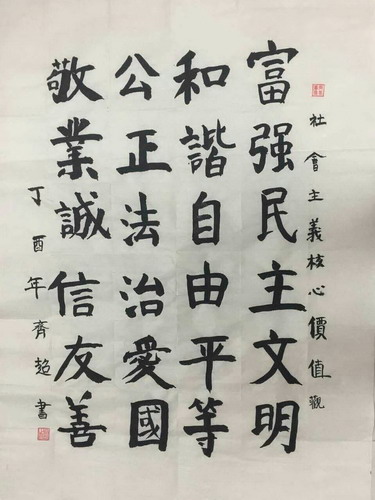 社會主義核心價值觀
富强民主文明
和諧自由平等
公正法治愛國
敬業誠信友善
丁酉年齊超書